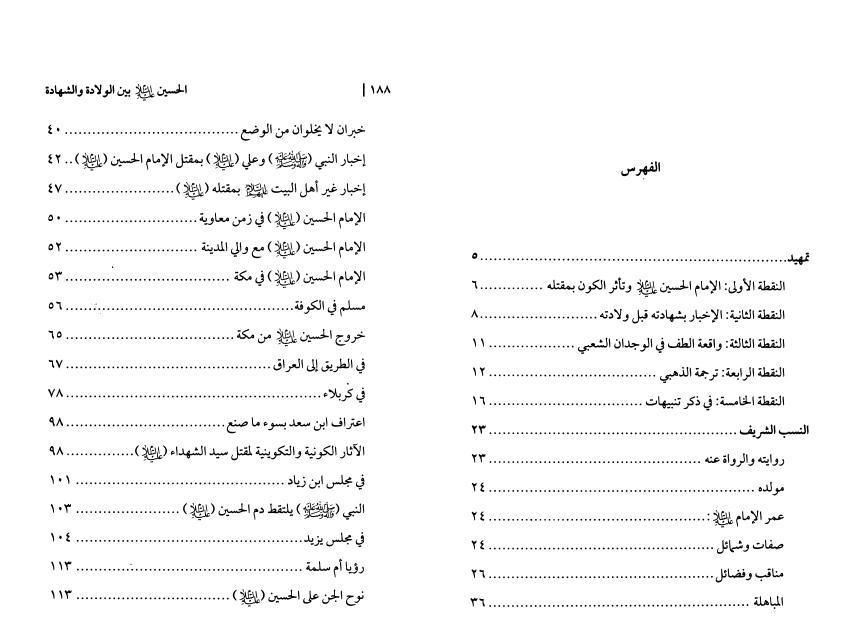 الفهرس
تمهيد ٥
النقطة الأولى: الإمام الحسين عليه السلام وتأثر الكون بمقتله ٦
النقطة الثانية: الإخبار بشهادته قبل ولادته ٨
النقطة الثالثة: واقعة الطف في الوجدان الشعبي ١١
النقطة الرابعة: ترجمة الذهبي ١٢
النقطة الخامسة: في ذكر تنبيهات ١٦
النسب الشريف ٢٣
روايته والرواة عنه ٢٣
مولده ٢٤
عمر الإمام عليه السلام: ٢٤
صفات وشمائل ٢٤
مناقب وفضائل ٢٦
المباهلة ٣٦
١٨٨ | الحسين عليه السلام بين الولادة والشهادة
خبران لا يخلوان من الوضع ٤٠
إخبار النبي (صلى الله عليه وآله وسلم) وعلي (عليه السلام) بمقتل الإمام الحسين (عليه السلام) ٤٢
إخبار غير أهل البيت عليهم السلام بمقتله (عليه السلام) ٤٧
الإمام الحسين (عليه السلام) في زمن معاوية ٥٠
الإمام الحسين (عليه السلام) مع والي المدينة ٥٢
الإمام الحسين (عليه السلام) في مكة ٥٣
مسلم في الكوفة ٥٦
خروج الحسين عليه السلام من مكة ٦٥
في الطريق إلى العراق ٦٧
في كربلاء ٧٨
اعتراف ابن سعد بسوء ما صنع ٩٨
الآثار الكونية والتكوينية لمقتل سيد الشهداء (عليه السلام) ٩٨
في مجلس ابن زياد ١٠١
النبي (صلى الله عليه وآله وسلم) يلتقط دم الحسين (عليه السلام) ١٠٣
في مجلس يزيد ١٠٤
رؤيا أم سلمة ١١٣
نوح الجن على الحسين (عليه السلام) ١١٣